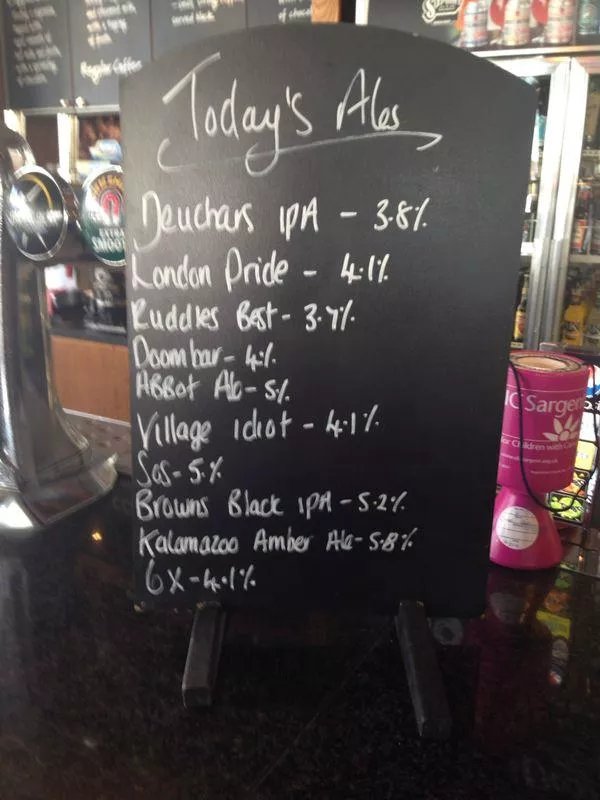 Today's Ales
Deuchars IPA - 3.8%
London Pride - 4.1%
Ruddles Best - 3.7%
Doombar - 4%
ABBot Ale - 5%
Village idiot - 4.1%
Sos - 5%
Browns Black IPA - 5.2%
Kalamazoo Amber Ale - 5.8%
6X - 4.1%
Regular Coffee
EXTRA
SMOOTH
C Sargent
Children with